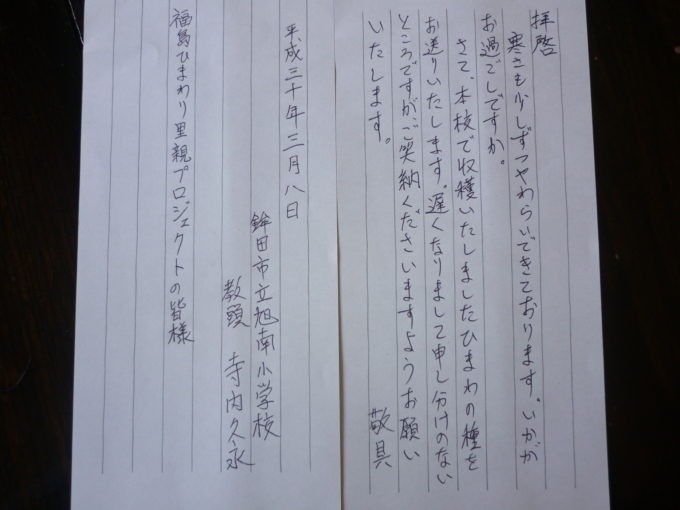 拝啓
寒さも少しずつやわらいできております。いかが
お過ごしですか。
さて、本校で収穫いたしましたひまわの種を
お送りいたします。遅くなりまして申し分けのない
ところですがご笑納くださいますようお願い
いたします。
敬具
平成三十年三月八日
鉾田市立旭南小学校
教頭 寺内久永
福島ひまわり里親プロジェクトの皆様